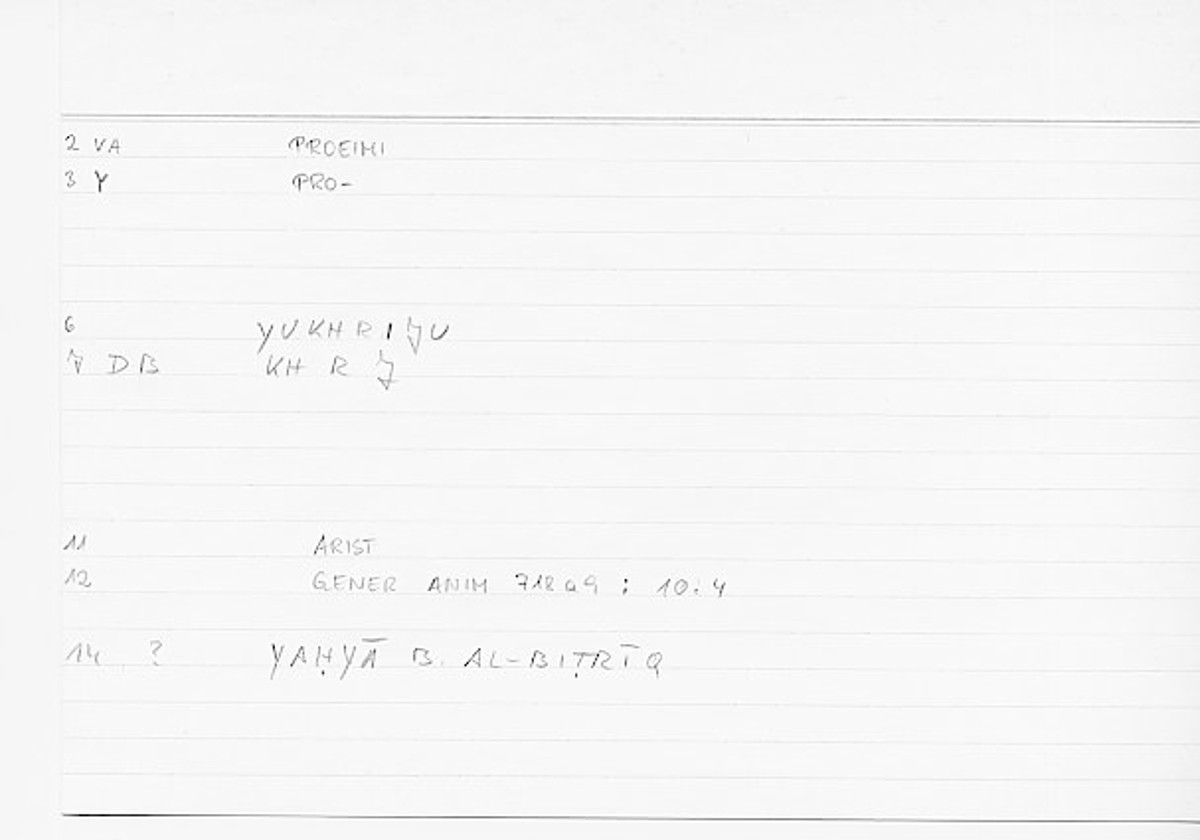 2 VA PROEIMI
3 Y PRO-
6 YUKHRIJU
7 DB KH R J
11 ARIST
12 GENER ANIM 718a9 : 10.4
14 ? YAḤYĀ B. AL-BIṬRĪQ